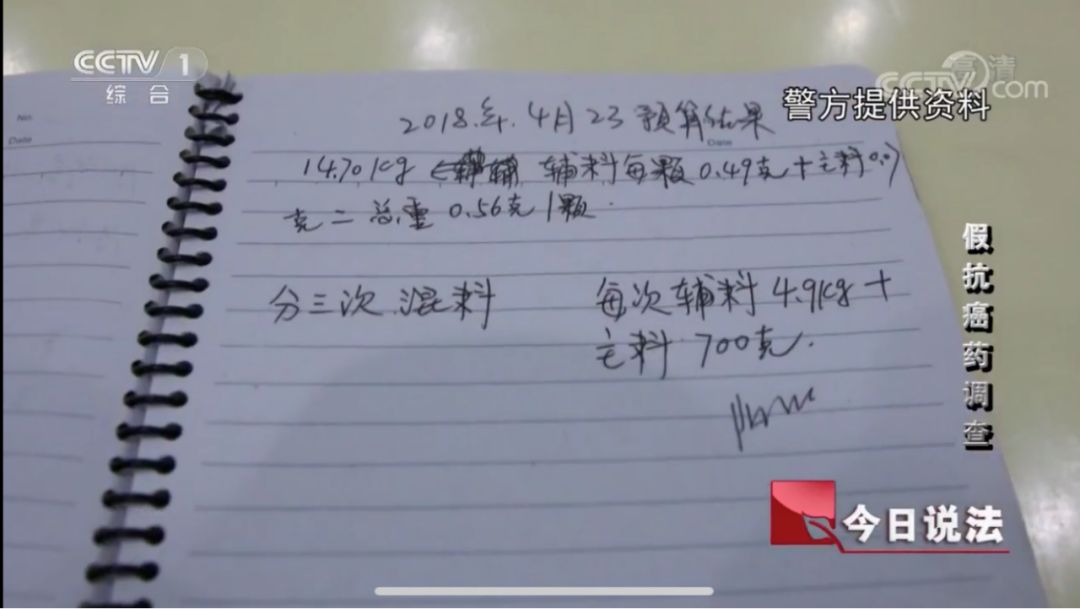 CCTV 1
综合
高清
CCTV.com
警方提供资料
No.
Date
Date
2018.年.4月23预算结果
14.70kg 辅料每颗0.49克+主料0.07
克=总重0.56克/颗.
分三次.混料
每次辅料4.9kg+
主料700克.
假抗癌药调查
今日说法